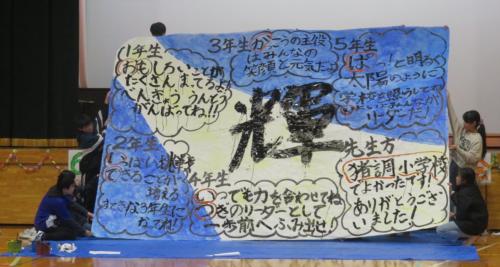 1年生
おもしろいことが
たくさんまてるよ
べんきょう うんどう
がんばってね!!
3年生
がっこうの主役
はみんなの
笑顔と元気だよ
5年生
ぱっ!と明るく
太陽のように
リーダーだ!
輝
2年生
できることが
増える
すてきな3年生に
なってね!
4年生
いつでも力を合わせてね
つぎのリーダーとして
一歩前へふみ出せ!
先生方
猪調小学校
でよかったです!
ありがとうござ
いました!